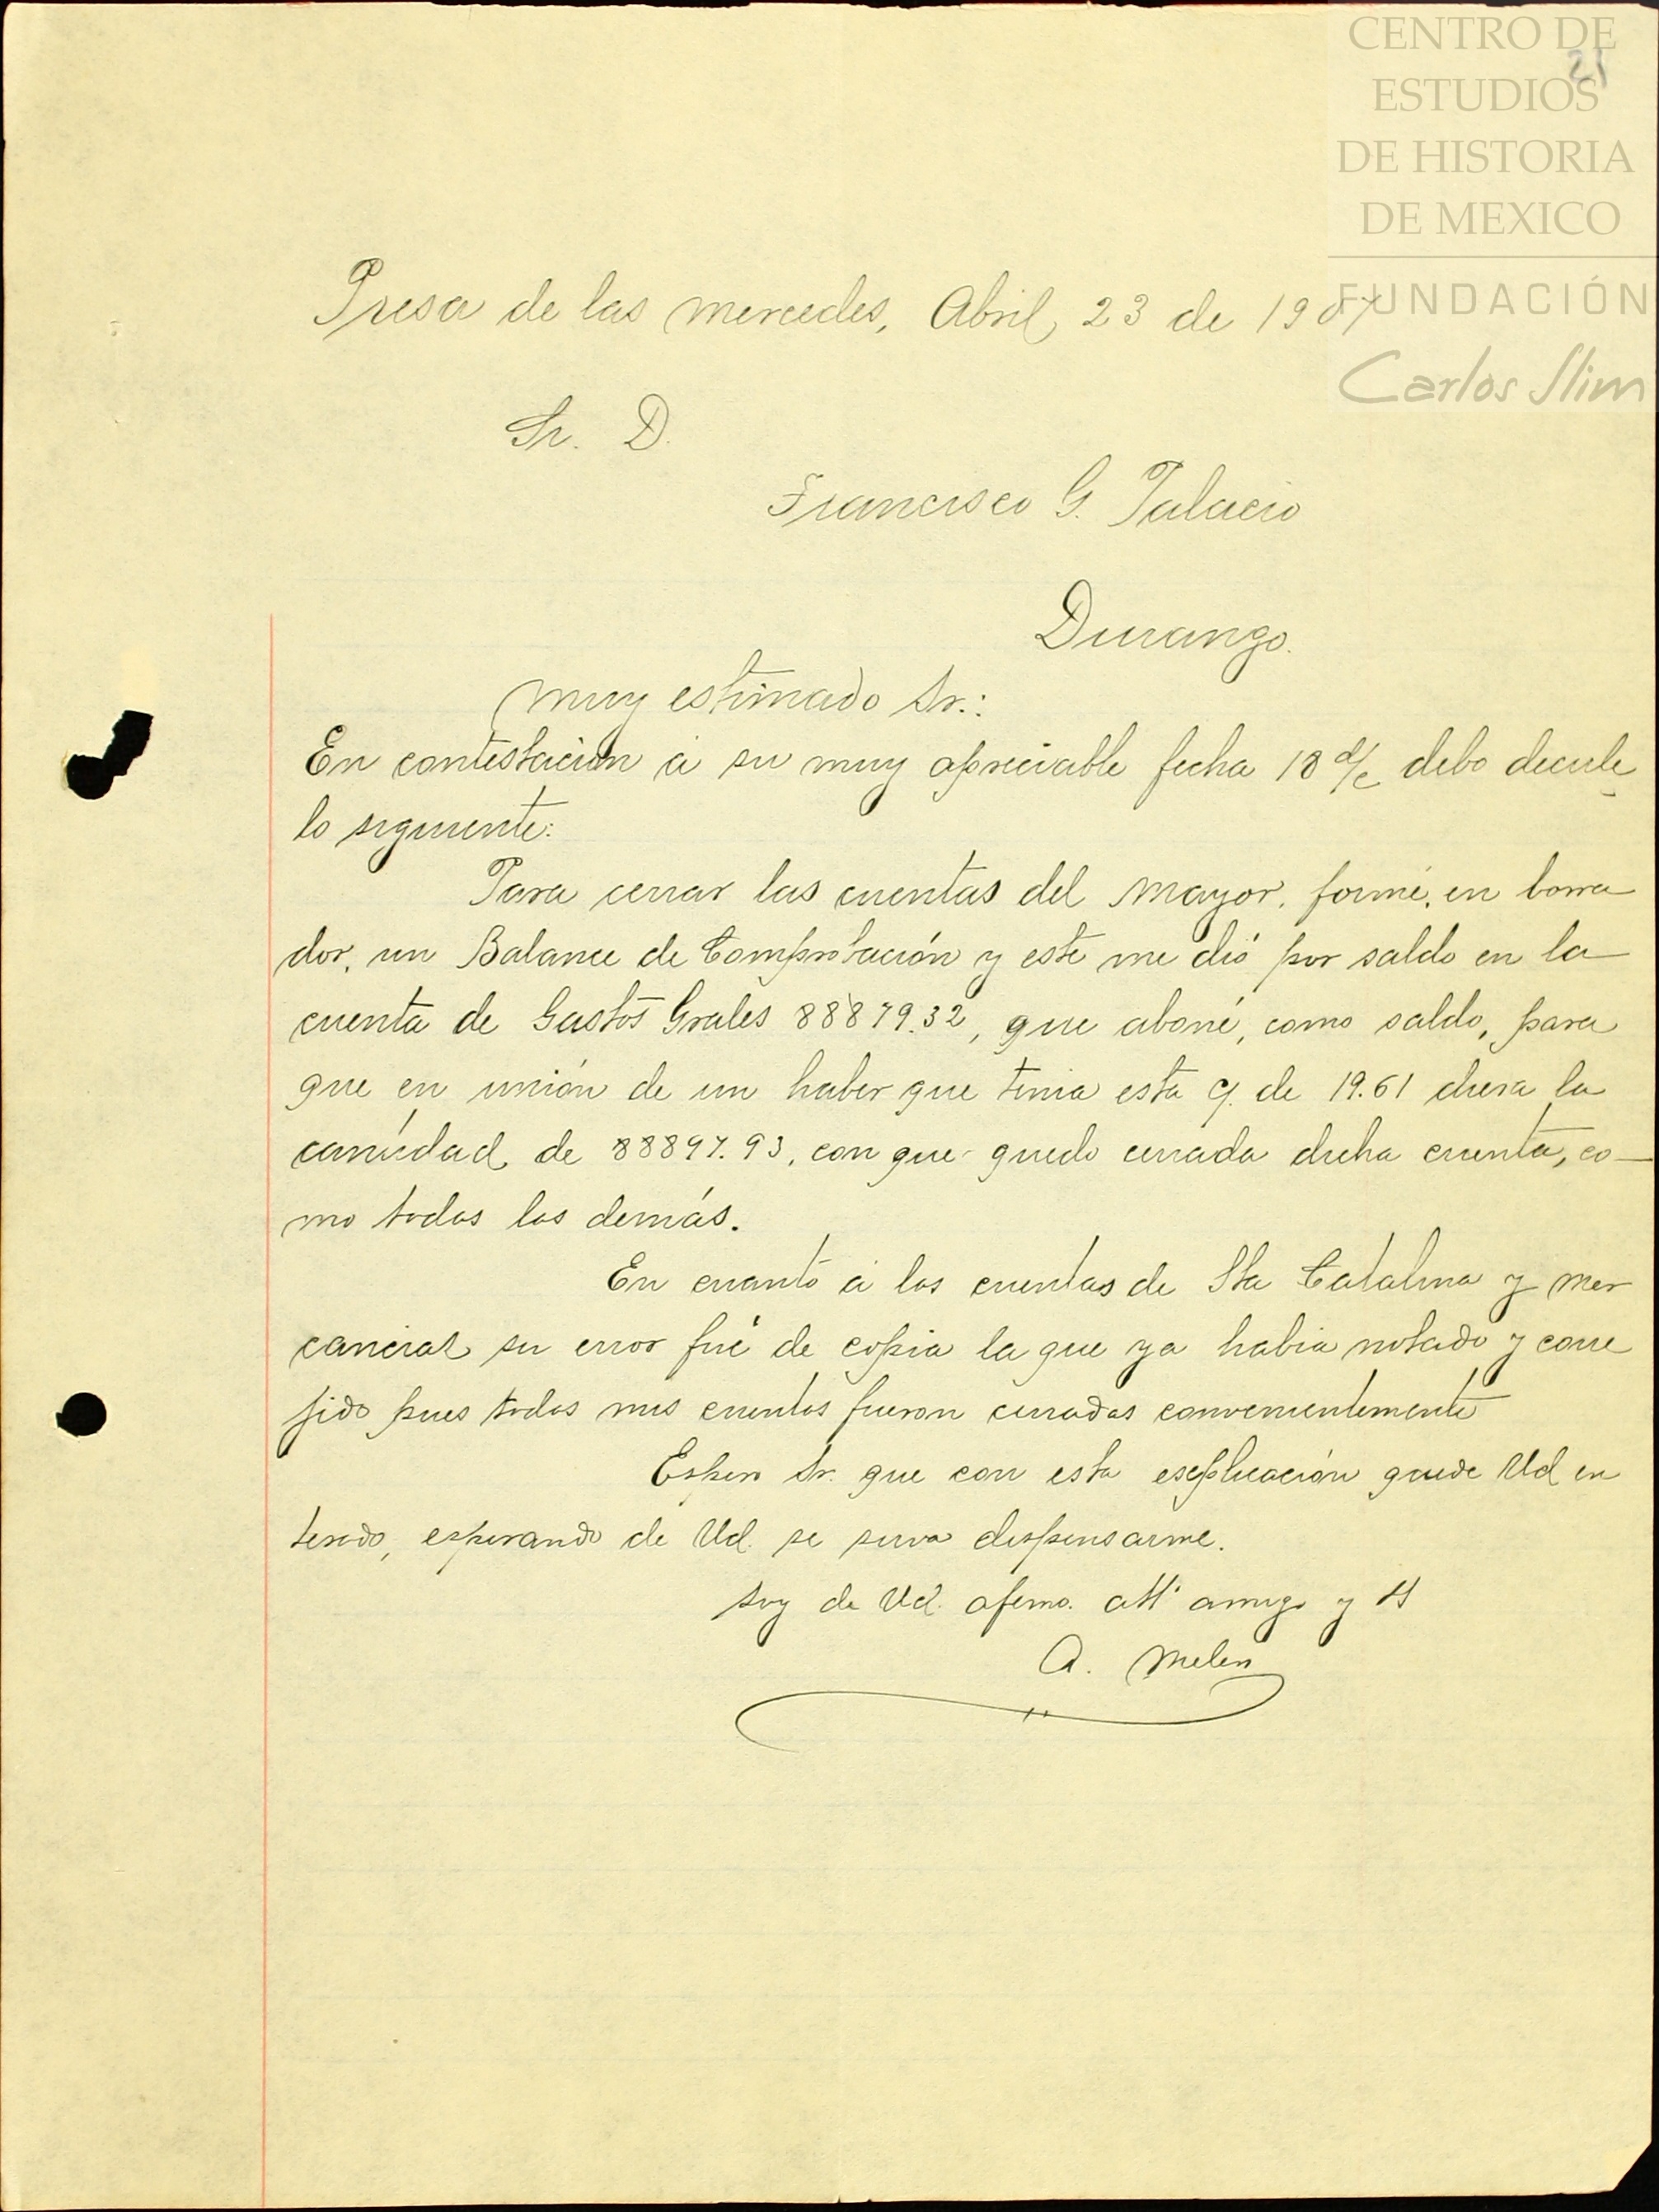 CENTRO DE
ESTUDIOS
DE HISTORIA
DE MEXICO
FUNDACIÓN
Carlos Slim
21
Presa de las Mercedes, Abril, 23 de 1907
Sr. D.
Francisco G. Palacio
Durango.
Muy estimado Sr.:
En contestación á su muy apreciable fecha 18 d/c debo decirle
lo siguiente:
Para cerrar las cuentas del Mayor, formé, en borra
dor, un Balance de Comprobación y este me dió por saldo en la
cuenta de Gastos Grales 88879.32, que aboné, como saldo, para
que en unión de un haber que tenia esta c/. de 19.61 diera la
cantidad de 88897.93, con que quedo cerrada dicha cuenta, co-
mo todas las demás.
En cuanto á las cuentas de Sta Catalina y Mer
cancias su error fué de copia la que ya habia notado y corre
jido pues todas mis cuentas fueron cerradas convenientemente
Espero Sr. que con esta esplicación quede Ud en
terado, esperando de Ud. se sirva dispensarme.
Soy de Ud. afemo. att amigo y SS
A. Melen